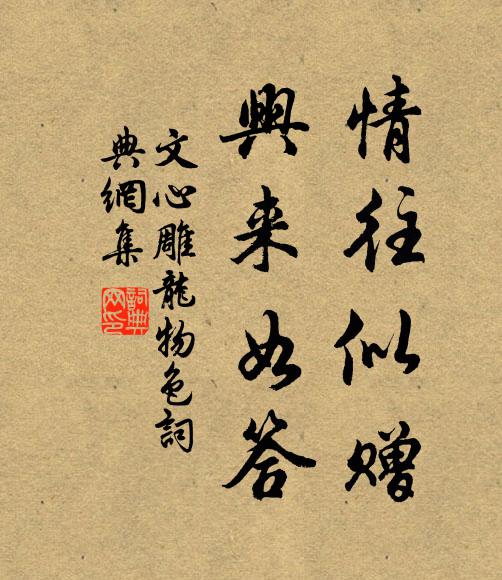 情往似赠
興来如答
文心雕龍物色詞
典網集
詞典
网印